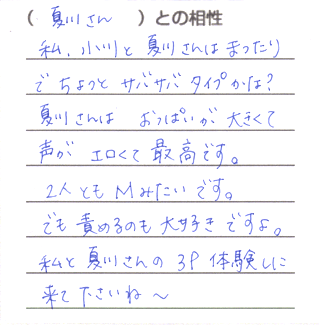 （ 夏川さん ）との相性
私、小川と夏川さんはまったり
でちょっとサバサバタイプかな？
夏川さんは おっぱいが大きくて
声がエロくて最高です。
2人ともMみたいです。
でも責めるのも大好きですよ。
私と夏川さんの3P体験しに
来て下さいね〜